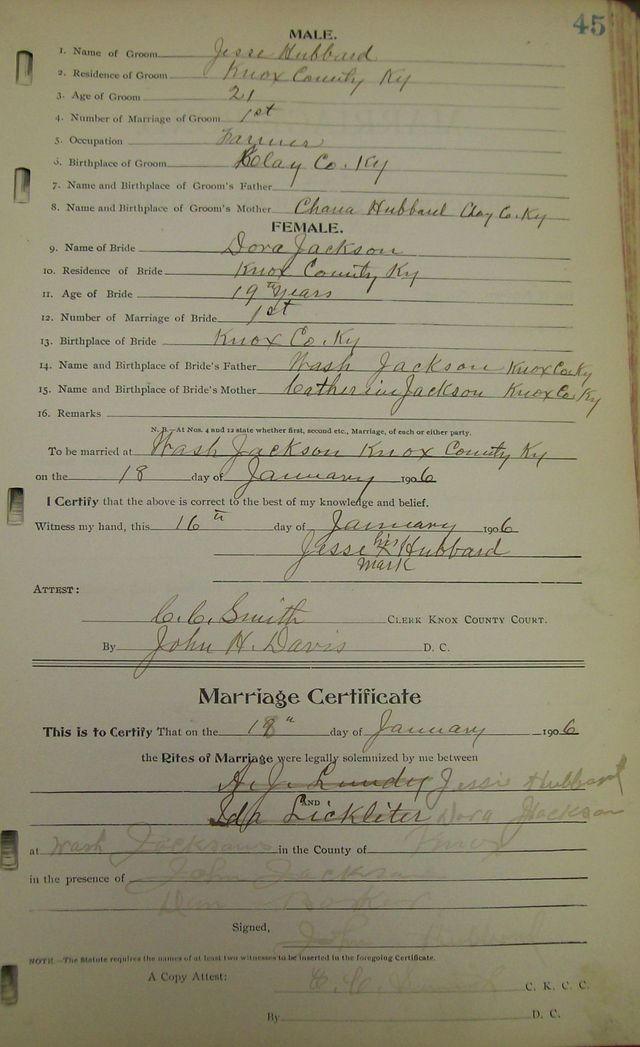 45
MALE.
1. Name of Groom Jesse Hubbard
2. Residence of Groom Knox County Ky
3. Age of Groom 21
4. Number of Marriage of Groom 1st
5. Occupation Farmer
6. Birthplace of Groom Clay Co. Ky
7. Name and Birthplace of Groom's Father
8. Name and Birthplace of Groom's Mother Hubbard Clay Co. Ky
FEMALE.
9. Name of Bride Dora Jackson
10. Residence of Bride Knox County Ky
11. Age of Bride 19 Years
12. Number of Marriage of Bride 1st
13. Birthplace of Bride Knox Co. Ky
14. Name and Birthplace of Bride's Father Wash Jackson Knox Co. Ky
15. Name and Birthplace of Bride's Mother Catherin Jackson Knox Co. Ky
16. Remarks
N. B.—At Nos. 4 and 12 state whether first, second etc., Marriage, of each or either party.
To be married at Wash Jackson Knox County Ky
on the 18 day of January 1906
I Certify that the above is correct to the best of my knowledge and belief.
Witness my hand, this 16th day of January 1906
Jesse his x mark Hubbard
ATTEST:
C. C. Smith CLERK KNOX COUNTY COURT.
By John H. Davis D. C.
Marriage Certificate
This is to Certify That on the 18" day of January 1906
the Rites of Marriage were legally solemnized by me between
A. J. Lundy Jessie Hubbard
AND
Ida Lickliter Dora Jackson
at Wash Jacksons in the County of Knox
in the presence of John Jackson
Signed,
John Hubbard
NOTE.—The Statute requires the names of at least two witnesses to be inserted in the foregoing Certificate.
A Copy Attest: C. K. C. C.
By D. C.